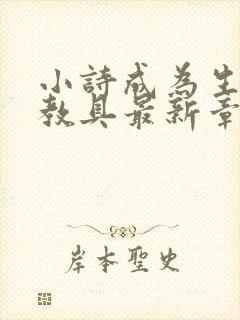 小詩成為生
教具最新章
岸本聖史